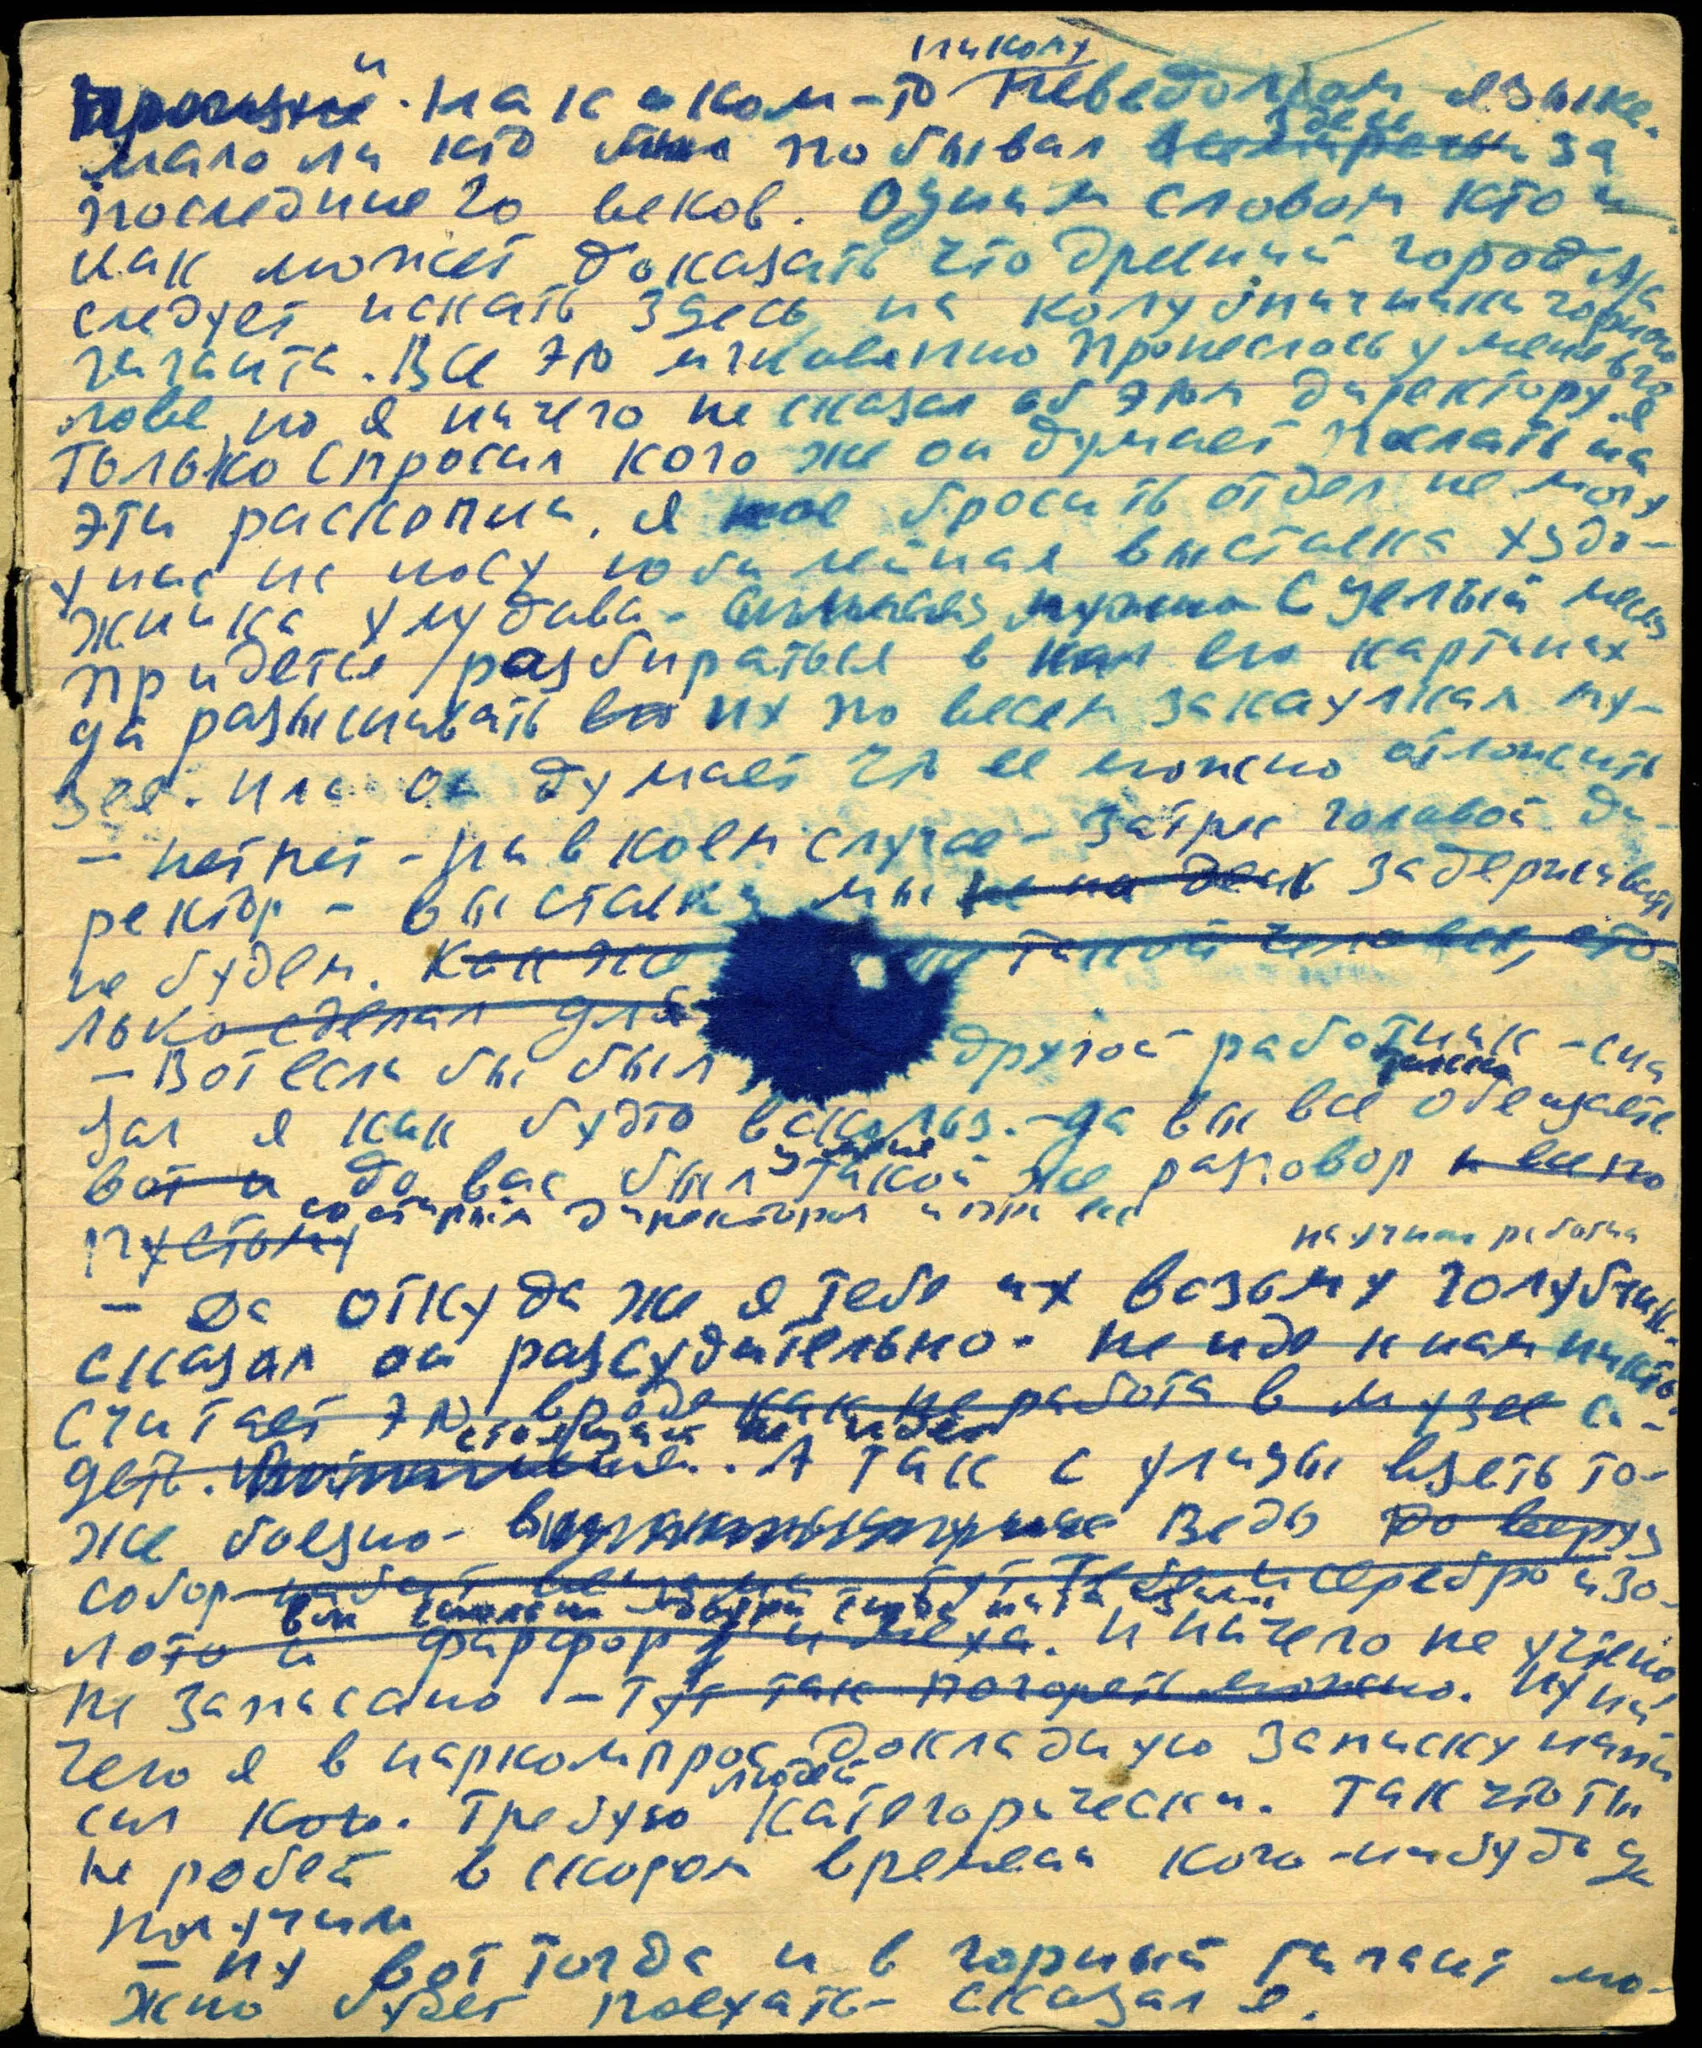 никому
на каком-то неведомом языке.
здесь
мало ли кто побывал за
последние 20 веков. Одним словом кто и
как может доказать что древний город
следует искать здесь на колу горного
гиганта. Все это мгновенно пронеслось у меня в го
лове, но я ничего не сказал об этом директору. я
только спросил кого же он думает послать на
эти раскопки. я бросить отдел не могу
у нас на носу юбилейная выставка худо-
жника Хлудова - целый месяц
придется разбираться в его картинах
да разыскивать их по всем закаулкам му-
зея. или он думает что ее можно отложить
- нет нет - ни в коем случае - затряс головой ди-
ректор - выставку мы не на день задерживать
не будем. Как же такой человек, сто-
лько сделал для
- Вот если бы был другой работник - ска
зал я как будто вскользь. - да вы все обещаете
вот и до вас был такой же разговор и все по
пустому
со старым директором и при ей
научных работни
- да откуда же я тебе их возьму голубчик. -
сказал он рассудительно. не иде к нам никто.
считает это вроде как не работа в музее си-
деть.
стоящий не идет
А так с улицы взять то-
же боязно - Ведь до верху
собор серебро и зо-
лото и фарфор и меха. и ничего не учтено,
не записано - тут так погореть можно. Ну ни
чего я в наркомпрос докладную записку напи
людей
сал кого. Требую категорически. Так что ты
не робей в скором времени кого-нибудь да
получим
- ну вот тогда и в горный гигант мо-
жно будет поехать - сказал я.